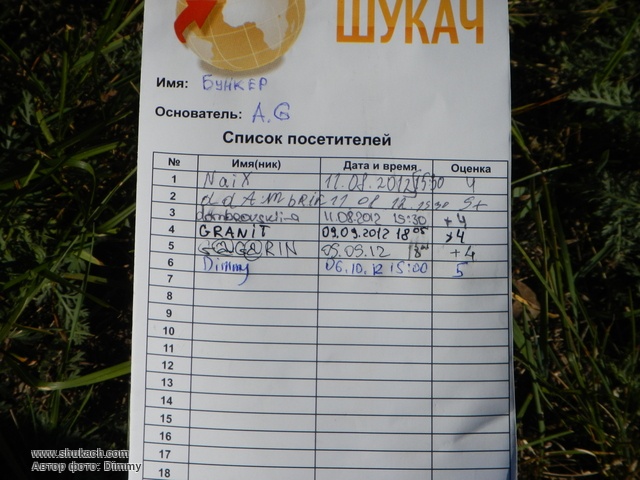 ШУКАЧ
Имя: Бункер
Основатель: A.G
Список посетителей
№ Имя(ник) Дата и время Оценка
1 NaiX 11.08.2012 1530 4
2 11 08 12 1530 5+
3 11.08.2012 15:30 +4
4 GRANIT 09.09.2012 18 05 >4
5 GAGARIN 09.09.12 +4
6 Dimmy 06.10.12 15:00 5
7
8
9
10
11
12
13
14
15
16
17
18
www.shukach.com
Автор фото: Dimmy